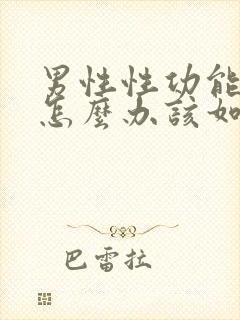 男性性功能
怎麼办該如
巴雷拉